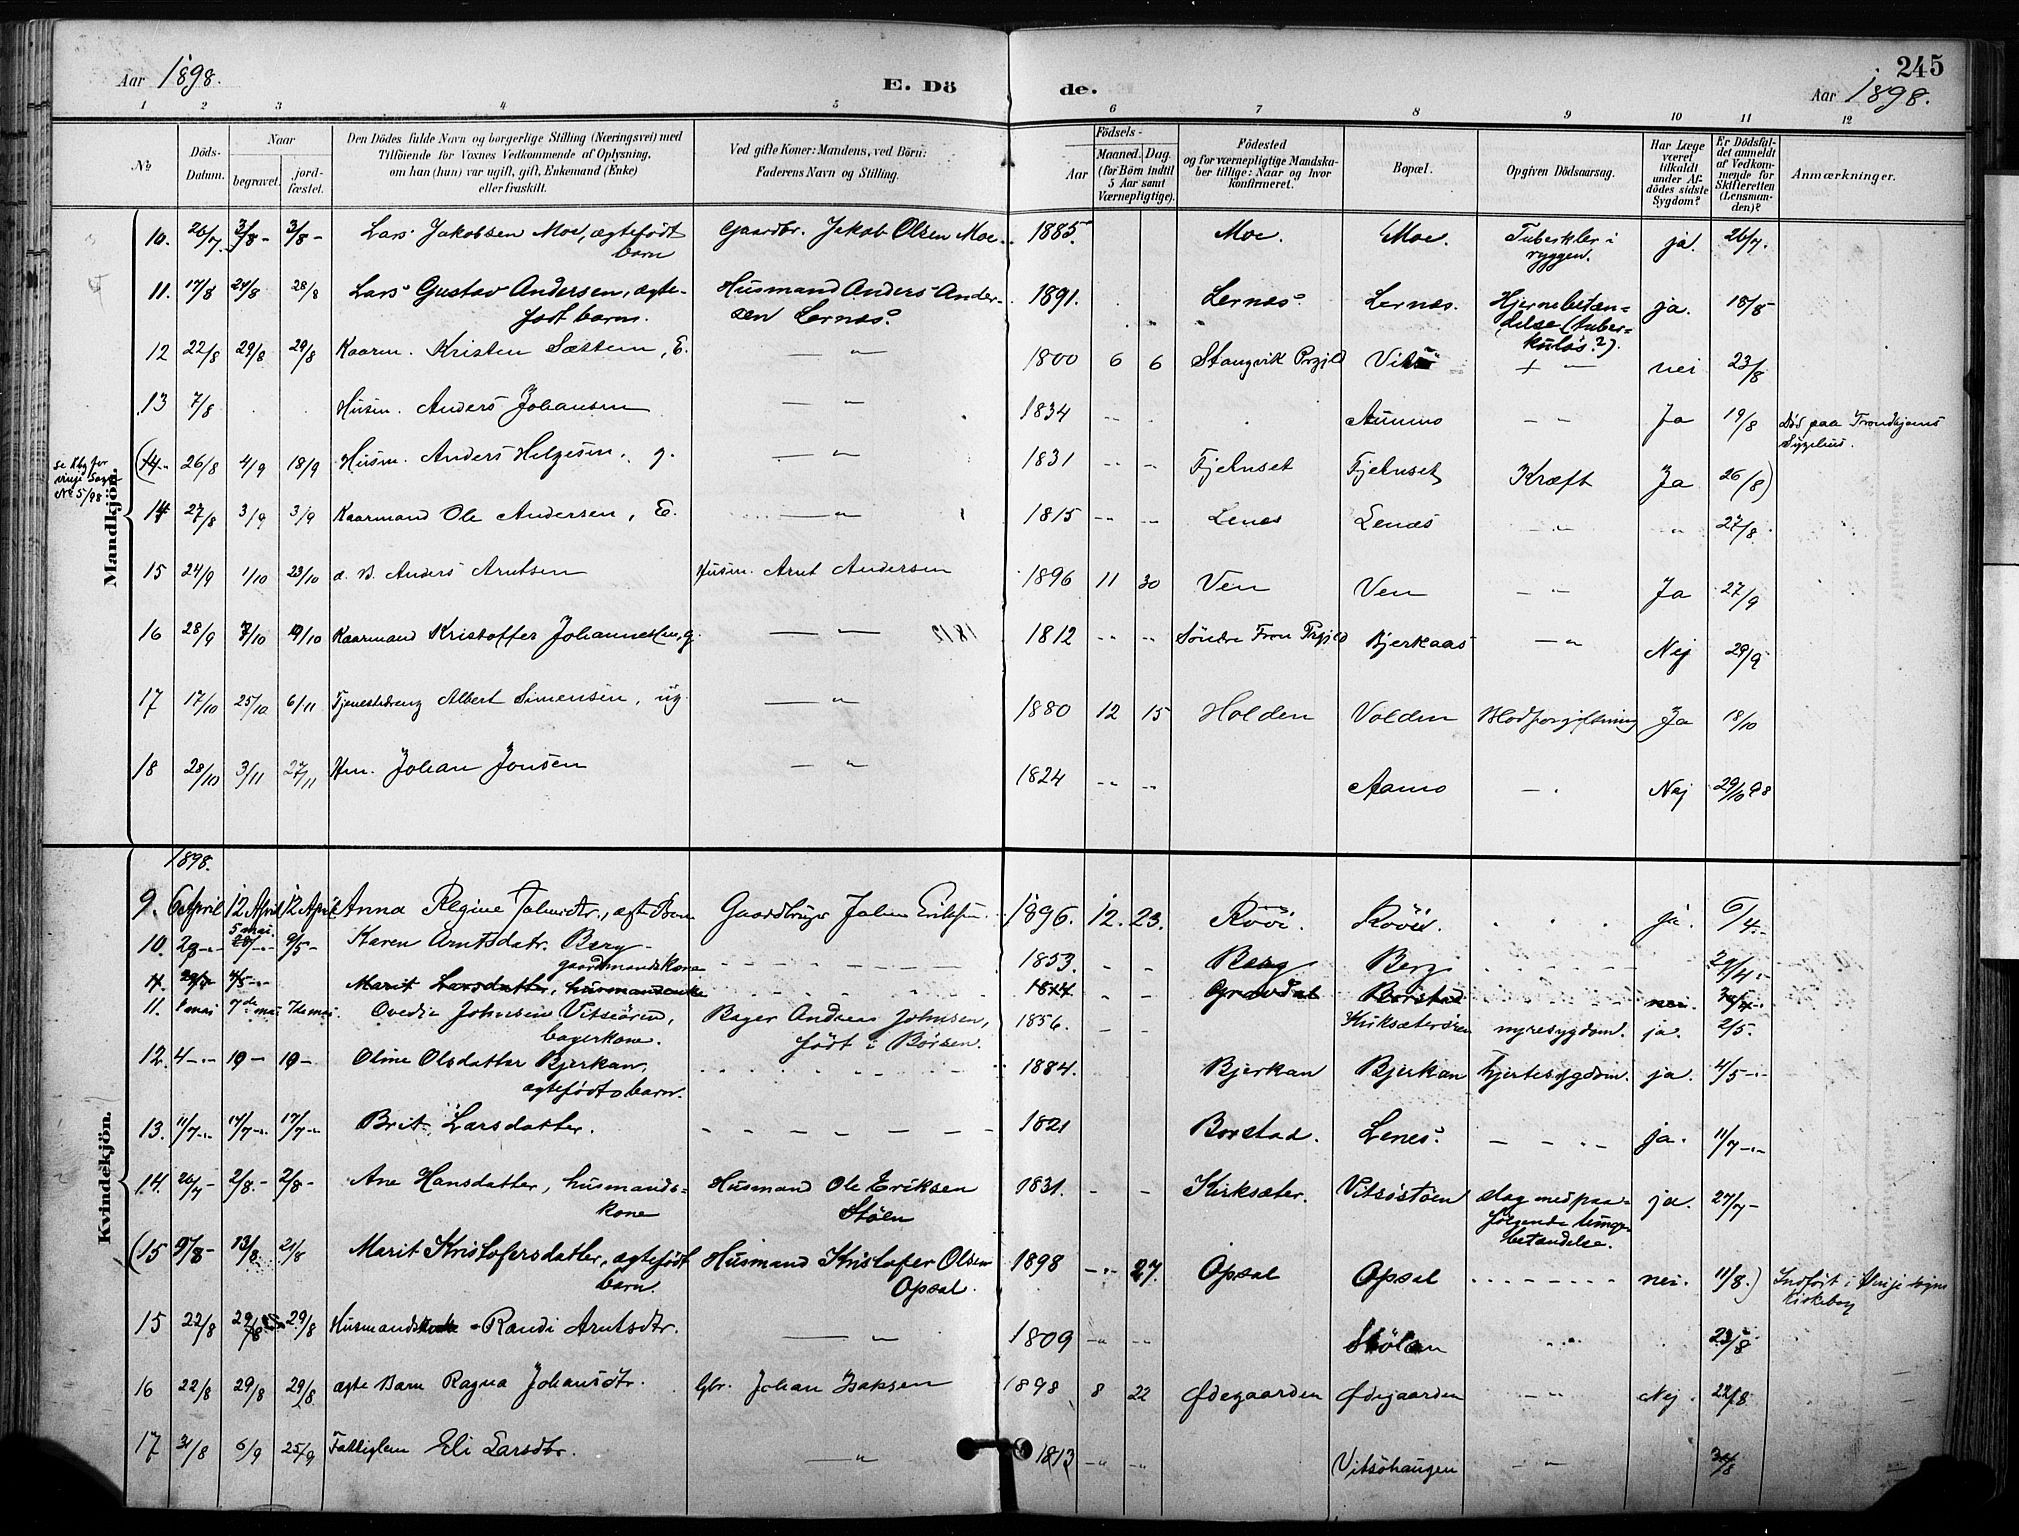 245
Aar 1898.
E. Dö de.
Aar 1898.
1 2 3 4 5 6 7 8 9 10 11 12
No.
Döds-Datum.
Naar
begravet.
jord-fæstet.
Den Dödes fulde Navn og borgerlige Stilling (Næringsvei) med
Tilföiende for Voxnes Vedkommende af Oplysning,
om han (hun) var ugift, gift, Enkemand (Enke)
eller fraskilt.
Ved gifte Koner: Mandens, ved Börn:
Faderens Navn og Stilling.
Födsels-
Aar
Maaned. Dag.
(for Börn indtil
5 Aar samt
Værnepligtige).
Födested
og for værnepligtige Mandska-
ber tillige: Naar og hvor
konfirmeret.
Bopæl.
Opgiven Dödsaarsag.
Har Læge
været
tilkaldt
under Af-
dödes sidste
Sygdom?
Er Dödsfal-
det anmeldt
af Vedkom-
mende for
Skifteretten
(Lensman-
den)?
Anmærkninger.
Mandkjön.
10. 26/7. 3/8- 3/8- Lars Jakobsen Moe, ægtefödt barn Gaardbr. Jakob Olsen Moe. 1885. Moe. Moe. Tuberkler i ryggen. ja. 26/7.
11. 17/8 24/8 28/8 Lars Gustav Andersen, ægte-födt barn. Husmand Anders Ander-sen Lernæs. 1891. Lernæs. Lernæs. Hjernebetæn-delse (tuber-kuløs?). ja. 18/8
12 22/8 29/8 29/8 Kaarm. Kristen Sættem, E. — " 1800 6 6 Stangvik Prgjld + " nei 23/8
13 7/8 Husm. Anders Johansen — " 1834 - - Aunmo - - Ja 19/8 Död paa Trondhjems Sygehus.
se Kbg for Vinje Sogn No 5/98
(14- 26/8 4/9 18/9 Husm. Anders Helgesen, g. — " 1831 - - Fjelnset Fjelnset Kræft Ja 26/8)
14 27/8 3/9 3/9 Kaarmand Ole Andersen, E. — " 1815 - - Lenes Lenæs - " " 27/8.
15 24/9 1/10 23/10 æ. B. Anders Arntsen Husm. Arnt Andersen 1896 11 30 Ven Ven - " Ja 27/9
16 28/9 7/10 9/10 Kaarmand Kristoffer Johannessen, g. — " 1812 - - Söndre Fron Prgjld Bjerkaas - " Nej 29/9
17 17/10 25/10 6/11 Tjenestedreng Albert Simensen, ug. — " 1880 12 15 Holden Volden Blodforgiftning Ja 18/10
18 28/10 3/11 27/11 Hm. Johan Jonsen — " 1824 - - Aamo - . Nej 29/10 98
Kvindekjön.
1898.
9. 6 April 12 April 12 April Anna Regine Johnsdtr., ægte Barn Gaardbruger John Eriksen. 1896. 12. 23. Rövi. Rövi. ja. 6/4.-
10. 29-- 5 mai. 9/5- Karen Arntsdatr. Berg gaardmandskone - - - - 1853. - - Berg Berg 29/4.-
Marit Larsdatter, husmandsenke 1814 - - Grøvdal Borstad nei.
11. 1 mai 7de mai 7de mai. Ovedie Johnsen Vitsøøren, bagerkone. Bager Andreas Johnsen, født i Börsen. 1856. - - Kirksæterören nyresygdom. ja. 2/5.
12. 4-- 19- 19- Oline Olsdatter Bjerkan, ægtefödt barn. 1884. Bjerkan Bjerkan hjertesygdom. ja. 4/5--
13. 11/7-- 17/7-- 17/7-- Brit Larsdatter. - - - - - - 1821 Borstad. Lenes. - - ja. 11/7--
14. 26/7 2/8.- 2/8- Ane Hansdatter, husmands-kone Husmand Ole Eriksen Stölen 1831. - - Kirksæter. Vitsöstöen slag med paa-fölgende lunge-betændelse. ja. 27/7-
(15 9/8- 13/8. 21/8 Marit Kristofersdatter, ægtefödt barn. Husmand Kristofer Olsen Opsal. 1898 -- 27. Opsal Opsal nei. 11/8.) Indfört i Vinje sogns Kirkebog
15 22/8 29/8 29/8 Husmands Randi Arntsdtr. — " 1809 - - Stölen 23/8
16 22/8 29/8 29/8 ægte Barn Ragna Johansdtr. Gbr. Johan Isaksen 1898 8 22 Ødegaarden Ødegaarden - " Nej. 22/8
17 31/8 6/9 25/9 Fattiglem Eli Larsdtr. — " 1813 - - Vitsöhaugen - "